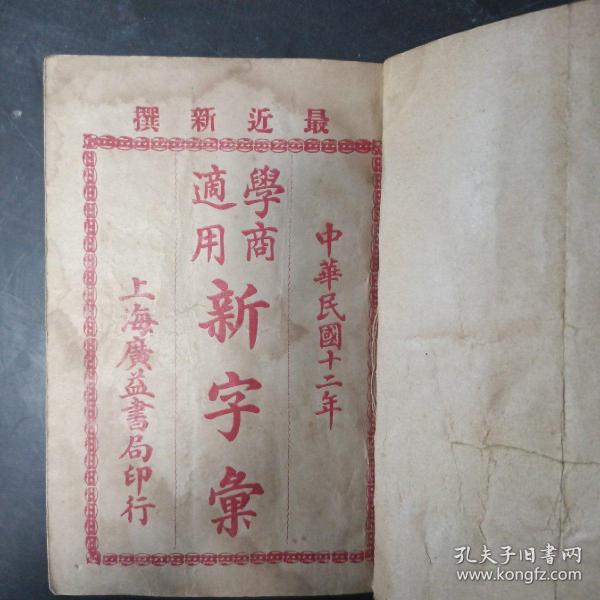 最近新撰
中華民國十二年
學商
適用
新字彙
上海廣益書局印行
孔夫子旧书网
www.kongfz.com